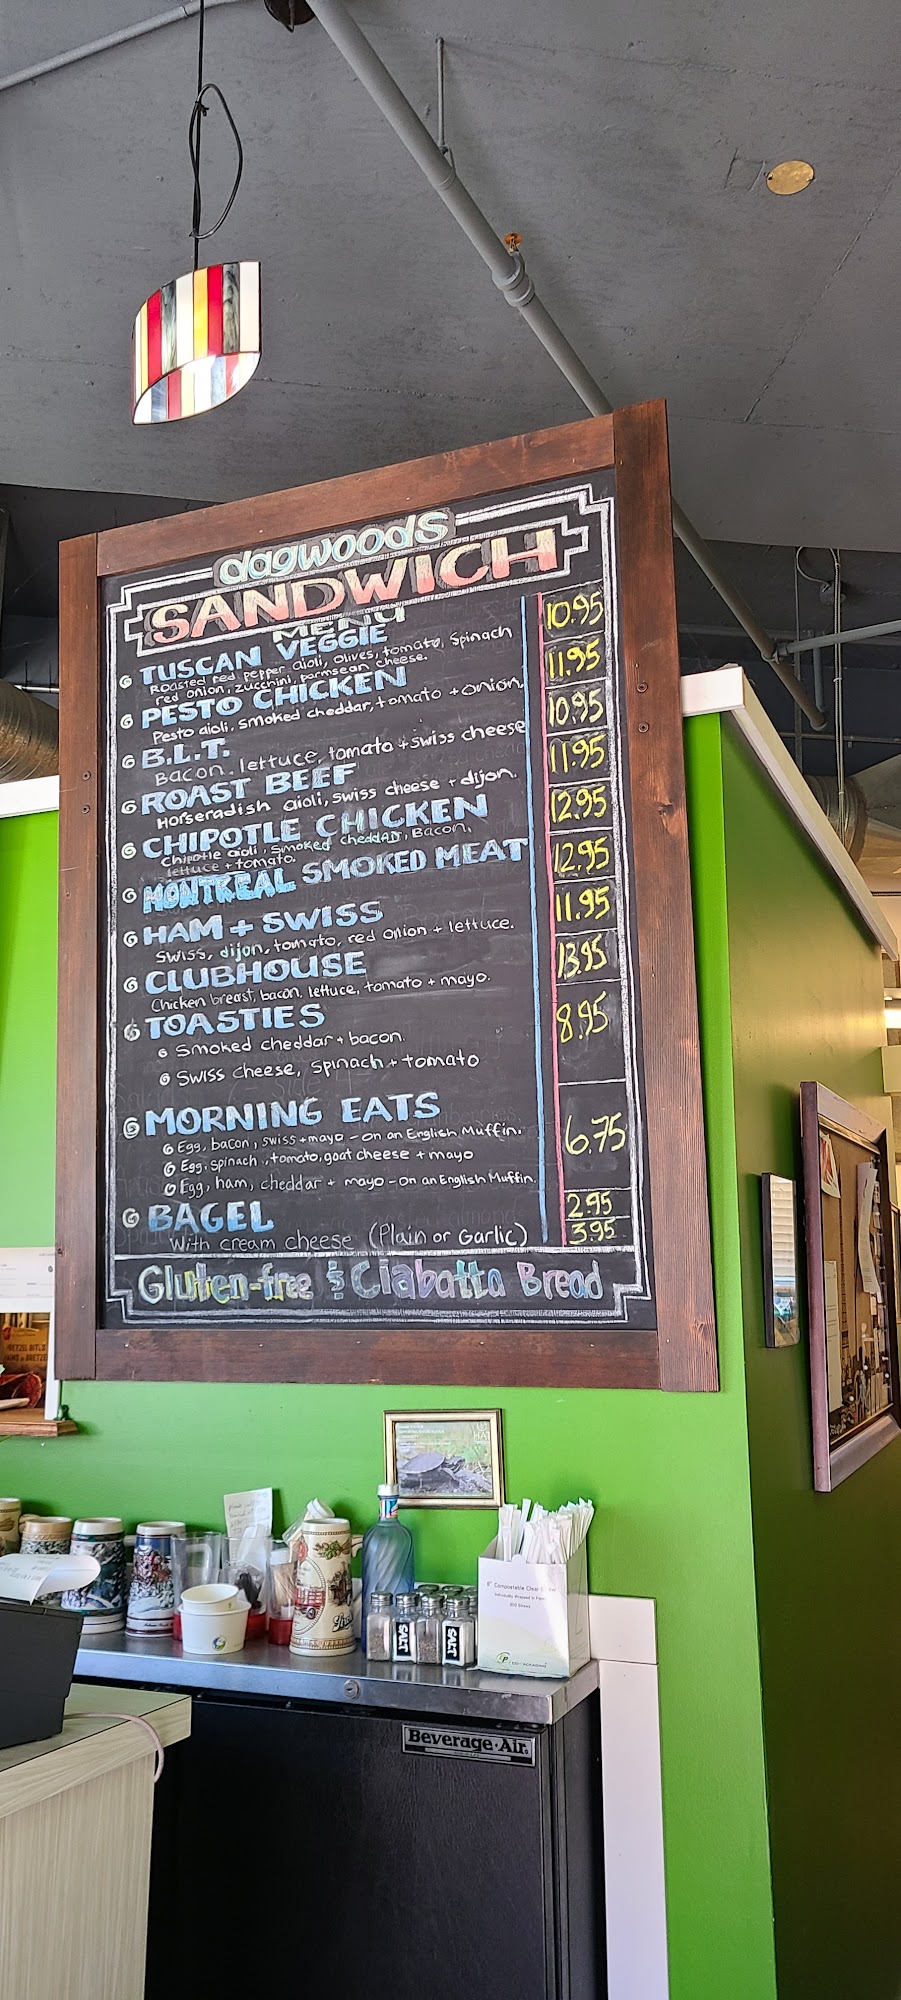 dagwoods
SANDWICH
MENU
TUSCAN VEGGIE 10.95
Roasted red pepper aioli, olives, tomato, spinach
red onion, zucchini, parmsean cheese.
PESTO CHICKEN 11.95
Pesto aioli, smoked cheddar, tomato + onion
B.L.T. 10.95
Bacon, lettuce, tomato + swiss cheese
ROAST BEEF 11.95
Horseradish aioli, swiss cheese + dijon.
CHIPOTLE CHICKEN 12.95
Chipotle aioli, smoked cheddar, Bacon,
lettuce + tomato.
MONTREAL SMOKED MEAT 12.95
HAM + SWISS 11.95
Swiss, dijon, tomato, red onion + lettuce.
CLUBHOUSE 13.95
Chicken breast, bacon, lettuce, tomato + mayo.
TOASTIES 8.95
Smoked cheddar + bacon
Swiss cheese, spinach + tomato
MORNING EATS 6.75
Egg, bacon, swiss + mayo - on an English Muffin.
Egg, spinach, tomato, goat cheese + mayo
Egg, ham, cheddar + mayo - on an English Muffin.
BAGEL 2.95
With cream cheese (Plain or Garlic) 3.95
Gluten-free & Ciabatta Bread
SALT
SALT
8" Compostable Clear
Individually Wrapped in Paper
Beverage-Air